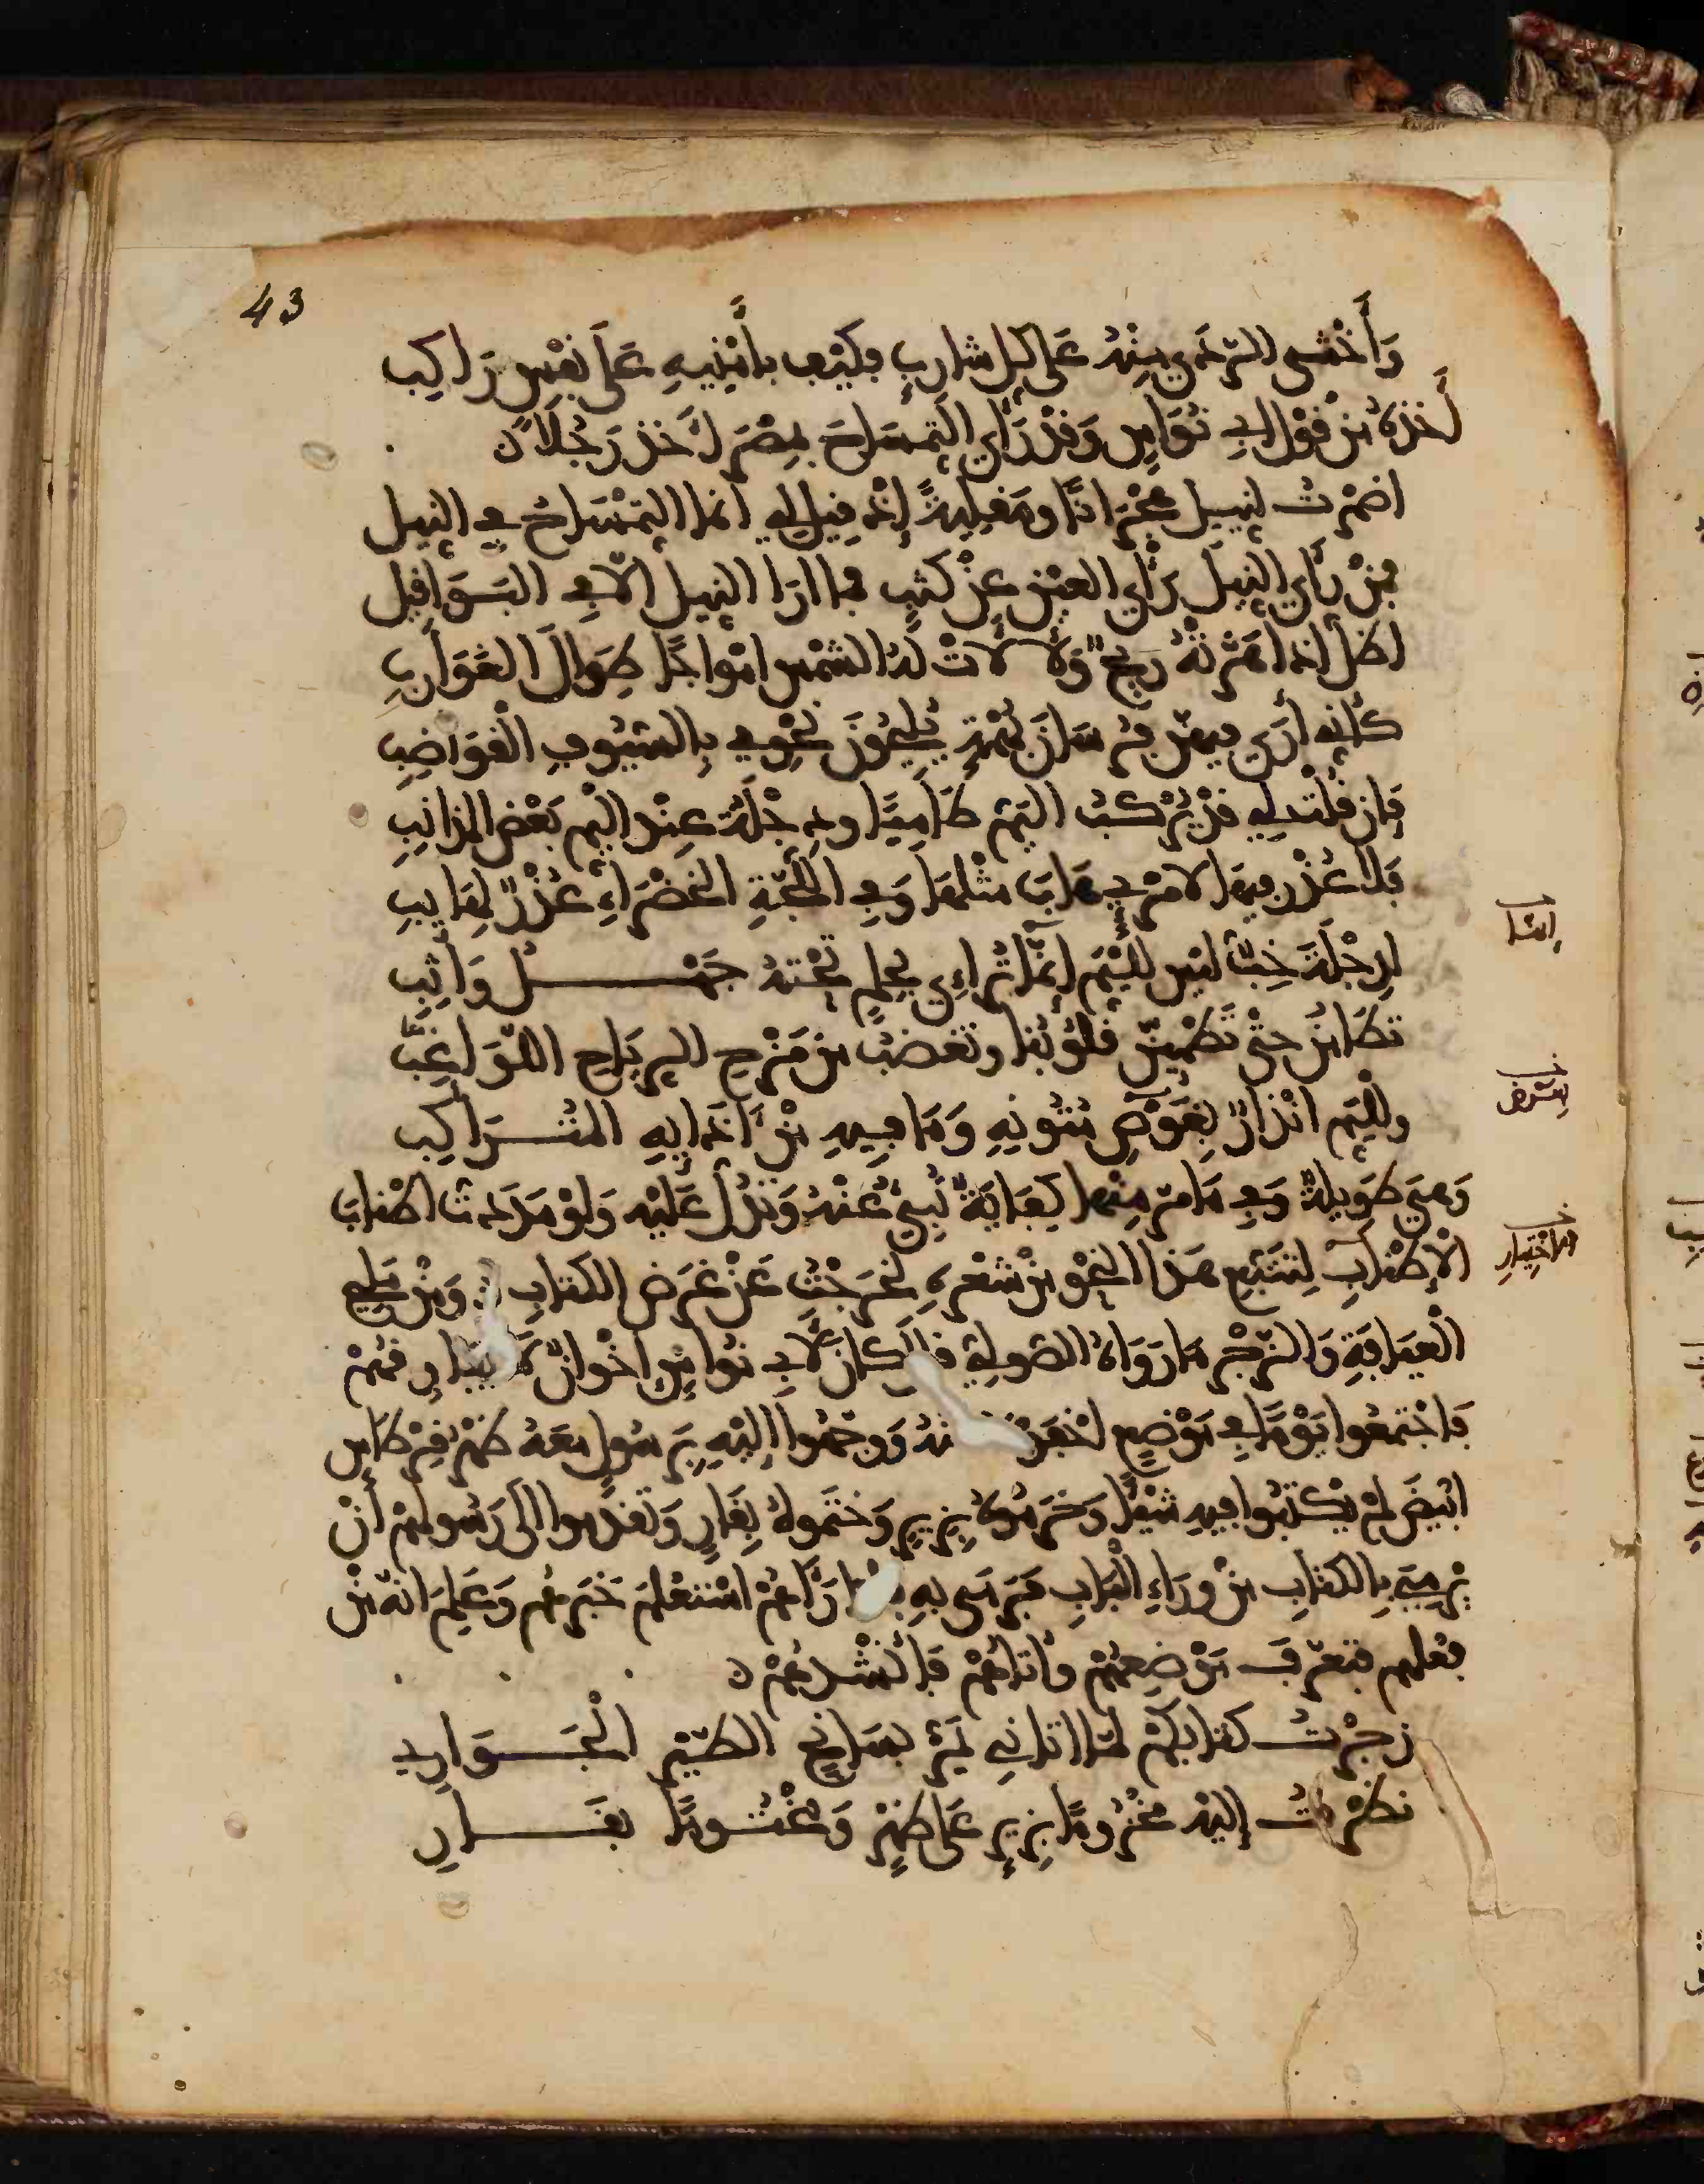 43
وَأَخْشى الرَّدَى مِنْهُ عَلَى كلِّ شَارِبٍ فكَيْفَ بِأَمْنِيهِ عَلَى نَفْسِ رَاكِب
أَخذهُ مِنْ قَوْلِ أبِي نُوَاسٍ وَقدْ رَأى التّمسَاحَ بِمِصْرَ أَخَذ رَجُلًا
اضمرْتُ لِلنيل هِجْرَانًا ومَقْلِيَةً إِذْ قِيلَ لِي انما التِّمْسَاحُ في النِّيل
فمَنْ رَأى النِّيلَ رَأْيَ العَيْنِ عَنْ كَثَبٍ فما ارَا النيل الّا في البَوَاقِيل
اظلّ اذا هَزّتْهُ رِيحٌ وَلألأتْ لهُ الشمْس امْواجًا طِوَالَ الغَوَارِبِ
كأَنِّي أَرَى فيهنّ فُرْسَانَ بُهْمَةٍ يُلِيحُونَ نحْوِي بِالسُّيُوفِ الْقَوَاضِبِ
فَإِن قُلْتَ لِي قدْ يُرْكَبُ اليَمُّ طَامِيًا ودِجْلَةُ عِنْدَ اليَمِّ بَعْضُ المذَانِبِ
فَلا عُذْرَ فِيهَا لامْرِئٍ هَابَ مثْلَهَا وَفي اللُّجَّةِ الخَضْرَاءِ عُذْرٌ لِهَايِبِ
لِدِجْلَةَ خِبٌّ لَيْسَ لِلْيَمِّ إِنَّمَا تُرَاءِي بِحِلمٍ تَحْتَهُ جَهْـــلُ وَاثِبِ
انسا
تَطَامَنُ حتَّى تَطْمَئِنَّ قُلُوبُنا وتغضبُ مِن مَزْحِ الرِّيَاحِ اللّوَاعِبِ
ولِلْيَمِّ انْذَارٌ بِغَوْصِ مُتُونِهِ وَمَا فِيهِ مِنْ آذَايِهِ المُتَرَاكِبِ
بِعَرْض
وَهِيَ طَوِيلَةٌ وَفي مَا مَرَّ مِنْهَا كِفَايَةٌ تُنْبِئُ عَنْهُ وَتَدُلُّ عَلَيْهِ وَلَوْ مَدَدتُ اطْنَابَ
الْإِطْنَابِ لِتَتَبُّعِ هَذَا النَّحْوِ مِنْ شِعْرِهِ لَخَرَجْتُ عَنْ غَرَضِ الكِتَابِ وَمِنْ مَلِيحِ
واخْتِيَارِ
الْعِيَافَةِ وَالزَّجْرِ مَا رَوَاهُ الصُّولِيُّ قال كانَ لأبِي نُوَاسٍ إِخْوانٌ لا يُفَارِقُهُمْ
فَاجْتَمَعُوا يَوْمًا في مَوْضِعٍ أَخْفَوْهُ عنْهُ وَوَجَّهُوا إِلَيْهِ بِرَسُولٍ مَعَهُ ظَهْرُ قِرْطَاسٍ
ابْيَضَ لَمْ يَكْتبُوا فِيهِ شَيْئًا وَخَزَمُوهُ بِزِيرٍ وَخَتَمُوهُ بِقَارٍ وَتَقَدَّمُوا إِلَى رَسُولِهِمْ أَنْ
يَرْمِيَ بِالكتَابِ مِنْ وَرَاءِ الْبَابِ فَرَمَى بِهِ فلمّا رَآهُمْ اسْتَعْلَمَ خَبَرَهُمْ وَعَلِمَ أَنَّهُ مِنْ
فِعْلِهِمْ فَتَعَرَّفَ مَوْضِعَهُمْ وأَتَاهُمْ فَأَنْشَدَهُمْ
زجَرْتُ كتَابَكُمْ لمّا اتَانِي يَمُرُّ بِسَانِحِ الطَّيْرِ الْجَـــوَارِي
نظَرْتُ إِلَيْهِ مَخْزُومًا بِزِيرٍ عَلَى ظَهْرٍ وَمَخْتُومًا بِقَـــارِ